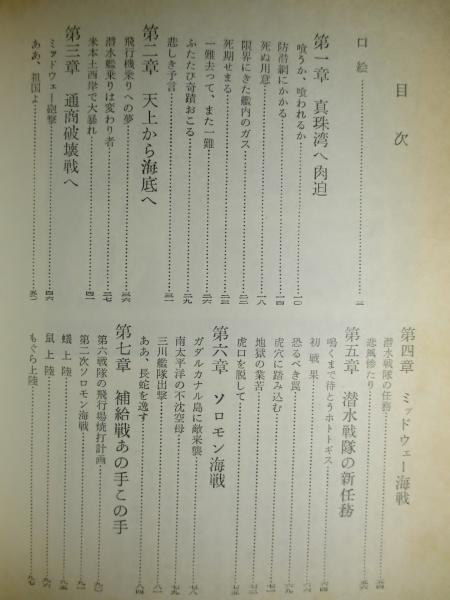 目次
口絵
第一章 真珠湾へ肉迫
喰うか、喰われるか
防潜網にかかる
死ぬ用意
限界にきた艦内のガス
死期せまる
一難去って、また一難
ふたたび奇蹟おこる
悲しき予言
第二章 天上から海底へ
飛行機乗りへの夢
潜水艦乗りは変わり者
米本土西岸で大暴れ
第三章 通商破壊戦へ
ミッドウェー砲撃
ああ、祖国よ
第四章 ミッドウェー海戦
潜水戦隊の任務
悲風惨たり
第五章 潜水戦隊の新任務
鳴くまで待とうホトトギス
初戦果
恐るべき罠
虎穴に踏み込む
地獄の業苦
虎口を脱して
第六章 ソロモン海戦
ガダルカナル島に敵来襲
南太平洋の不沈空母
三川艦隊出撃
ああ、長蛇を逸す
第七章 補給戦あの手この手
第六戦隊の飛行場焼打計画
第二次ソロモン海戦
蟻上陸
鼠上陸
もぐら上陸